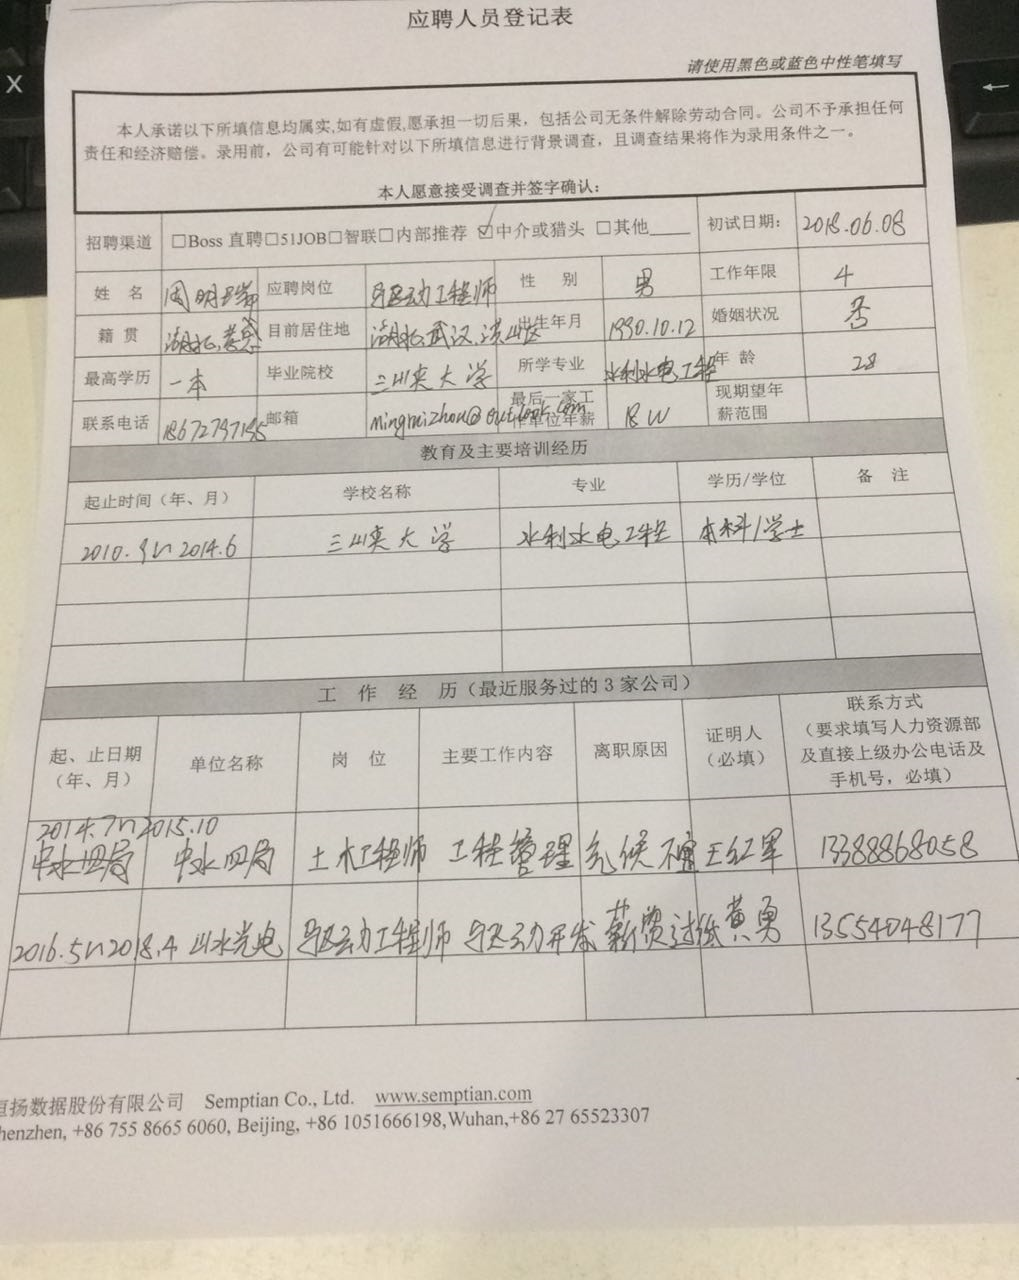 应聘人员登记表
请使用黑色或蓝色中性笔填写
本人承诺以下所填信息均属实,如有虚假,愿承担一切后果,包括公司无条件解除劳动合同。公司不予承担任何
责任和经济赔偿。录用前,公司有可能针对以下所填信息进行背景调查,且调查结果将作为录用条件之一。
本人愿意接受调查并签字确认:
招聘渠道 □Boss 直聘□51JOB□智联□内部推荐 ☑中介或猎头 □其他____ 初试日期: 2018.06.08
姓 名 周明瑞 应聘岗位 驱动工程师 性 别 男 工作年限 4
籍 贯 湖北 目前居住地 湖北武汉洪山区 出生年月 1990.10.12 婚姻状况 否
最高学历 一本 毕业院校 三峡大学 所学专业 水利水电工程 年 龄 28
联系电话 邮箱 mingruizhou@outlook.com 最后一家工作单位年薪 18W 现期望年薪范围
教育及主要培训经历
起止时间(年、月) 学校名称 专业 学历/学位 备 注
2010.9~2014.6 三峡大学 水利水电工程 本科/学士
工 作 经 历(最近服务过的 3 家公司)
起、止日期(年、月) 单位名称 岗 位 主要工作内容 离职原因 证明人(必填) 联系方式(要求填写人力资源部及直接上级办公电话及手机号,必填)
2014.7~2015.10
中水四局 中水四局 土木工程师 工程管理 气候不 王红军 13388868058
2016.5~2018.4 山水光电 驱动工程师 驱动开发 薪资过低 黄勇 13554048177
恒扬数据股份有限公司 Semptian Co., Ltd. www.semptian.com
henzhen, +86 755 8665 6060, Beijing, +86 1051666198,Wuhan,+86 27 65523307